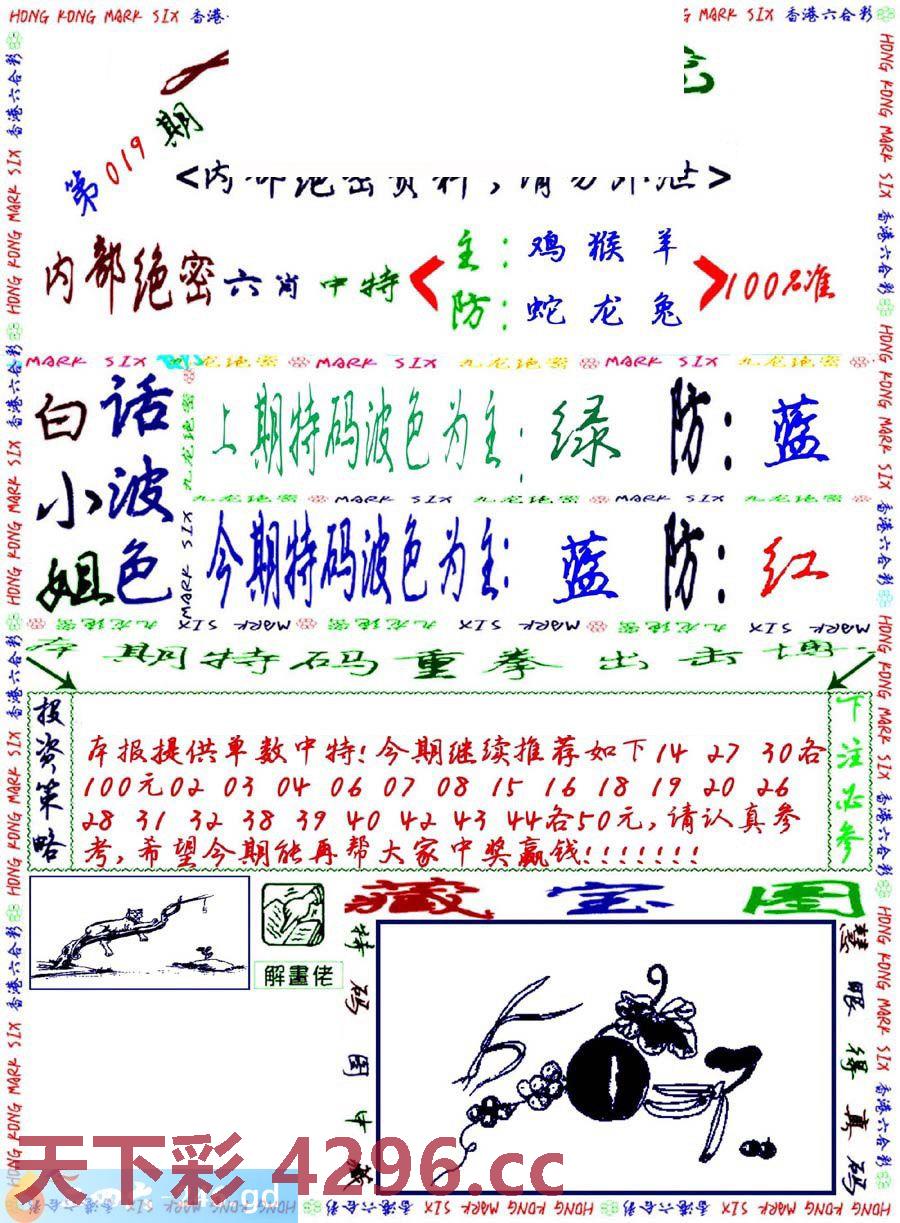 HONG KONG MARK SIX 香港
MARK SIX 香港六合彩
第019期
<内部绝密资料,请勿外泄>
内部绝密六肖中特
主:鸡猴羊
防:蛇龙兔
100%准
MARK SIX 九龙绝密 MARK SIX 九龙绝密 MARK SIX 九龙绝密
白话小姐
波色
上期特码波色为主:绿 防:蓝
九龙绝密 MARK SIX 九龙绝密 MARK SIX 九龙绝密
今期特码波色为主:蓝 防:红
期特码重拳出击
投资策略
本报提供单数中特!今期继续推荐如下14 27 30各
100元02 03 04 06 07 08 15 16 18 19 20 26
28 31 32 38 39 40 42 43 44各50元,请认真参
考,希望今期能再帮大家中奖赢钱!!!!!!!
下注必参
解畫佬
藏宝图
特码图中
慧眼得真码
天下彩4296.cc
gd